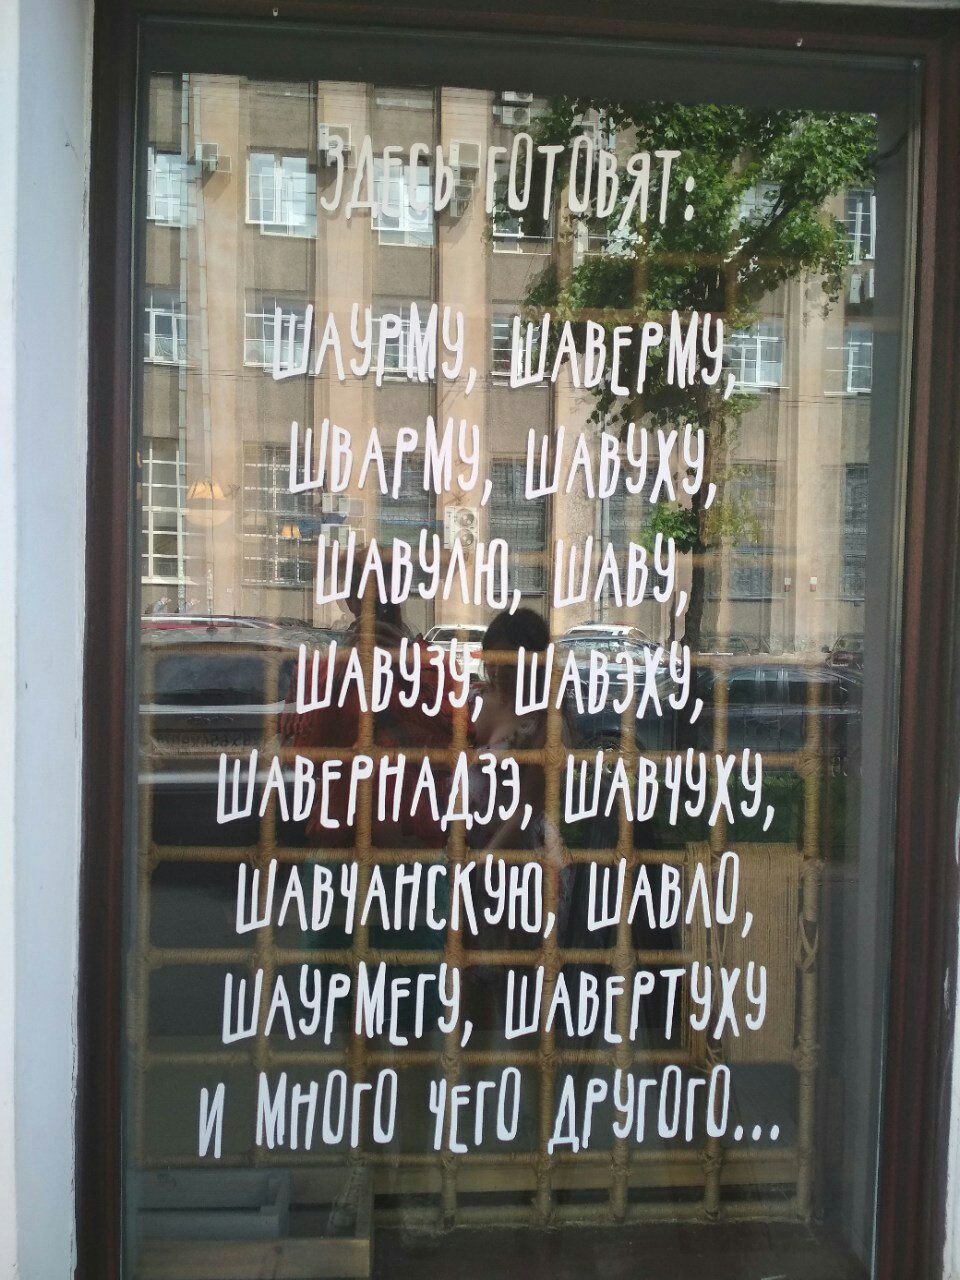 ЗДЕСЬ ГОТОВЯТ:
ШАУРМУ, ШАВЕРМУ,
ШВАРМУ, ШАВУХУ,
ШАВУЛЮ, ШАВУ,
ШАВУЗУ, ШАВЭХУ,
ШАВЕРНАДЗЭ, ШАВЧУХУ,
ШАВЧАНСКУЮ, ШАВЛО,
ШАУРМЕГУ, ШАВЕРТУХУ
И МНОГО ЧЕГО ДРУГОГО...